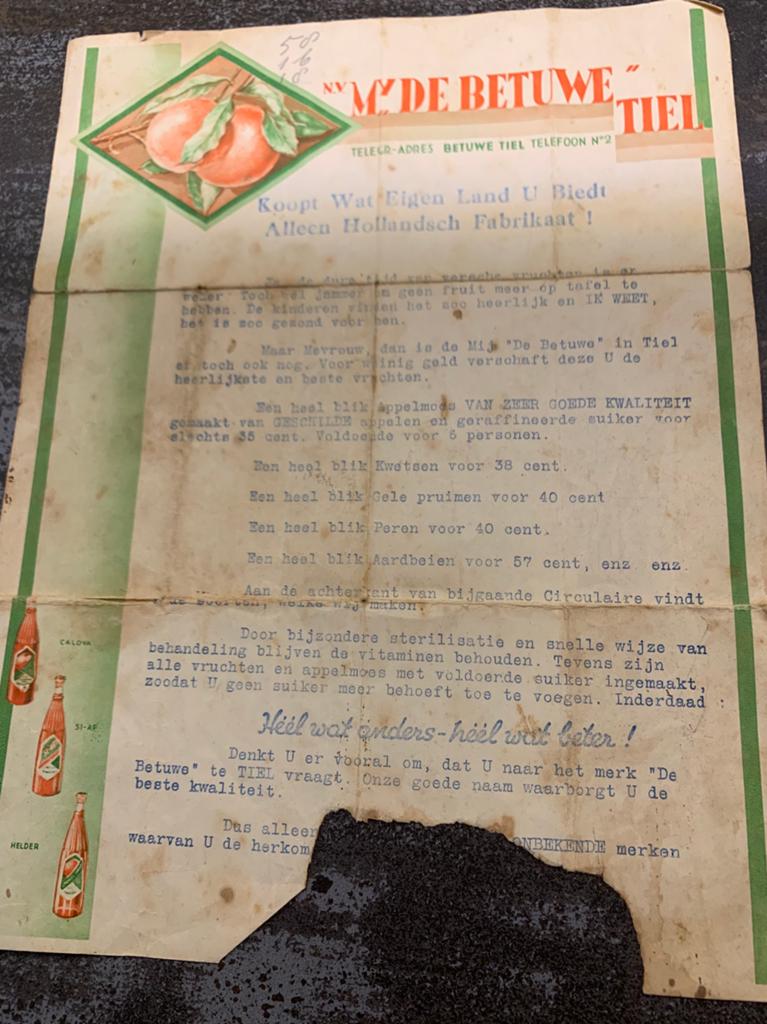 58
16
18
N.V. "Mij. DE BETUWE" TIEL
TELEGR-ADRES BETUWE TIEL TELEFOON Nº2
Koopt Wat Eigen Land U Biedt
Alleen Hollandsch Fabrikaat !
dure tijd van versche vruchten is er
weer. Toch wel jammer om geen fruit meer op tafel te
hebben. De kinderen vinden het zoo heerlijk en IK WEET,
het is zoo gezond voor hen.
Maar Mevrouw, dan is de Mij "De Betuwe" in Tiel
er toch ook nog. Voor weinig geld verschaft deze U de
heerlijkste en beste vruchten.
Een heel blik Appelmoes VAN ZEER GOEDE KWALITEIT
gemaakt van GESCHILDE appelen en geraffineerde suiker voor
slechts 35 cent. Voldoende voor 6 personen.
Een heel blik Kwetsen voor 38 cent.
Een heel blik Gele pruimen voor 40 cent
Een heel blik Peren voor 40 cent.
Een heel blik Aardbeien voor 57 cent, enz. enz.
Aan de achterkant van bijgaande Circulaire vindt
U de soorten, welke wij maken.
Door bijzondere sterilisatie en snelle wijze van
behandeling blijven de vitaminen behouden. Tevens zijn
alle vruchten en appelmoes met voldoende suiker ingemaakt,
zoodat U geen suiker meer behoeft toe te voegen. Inderdaad :
Héél wat anders - héél wat beter !
Denkt U er vooral om, dat U naar het merk "De
Betuwe" te TIEL vraagt. Onze goede naam waarborgt U de
beste kwaliteit.
Dus alleen ONBEKENDE merken
waarvan U de herkom
CALOVA
SI-AP
HELDER